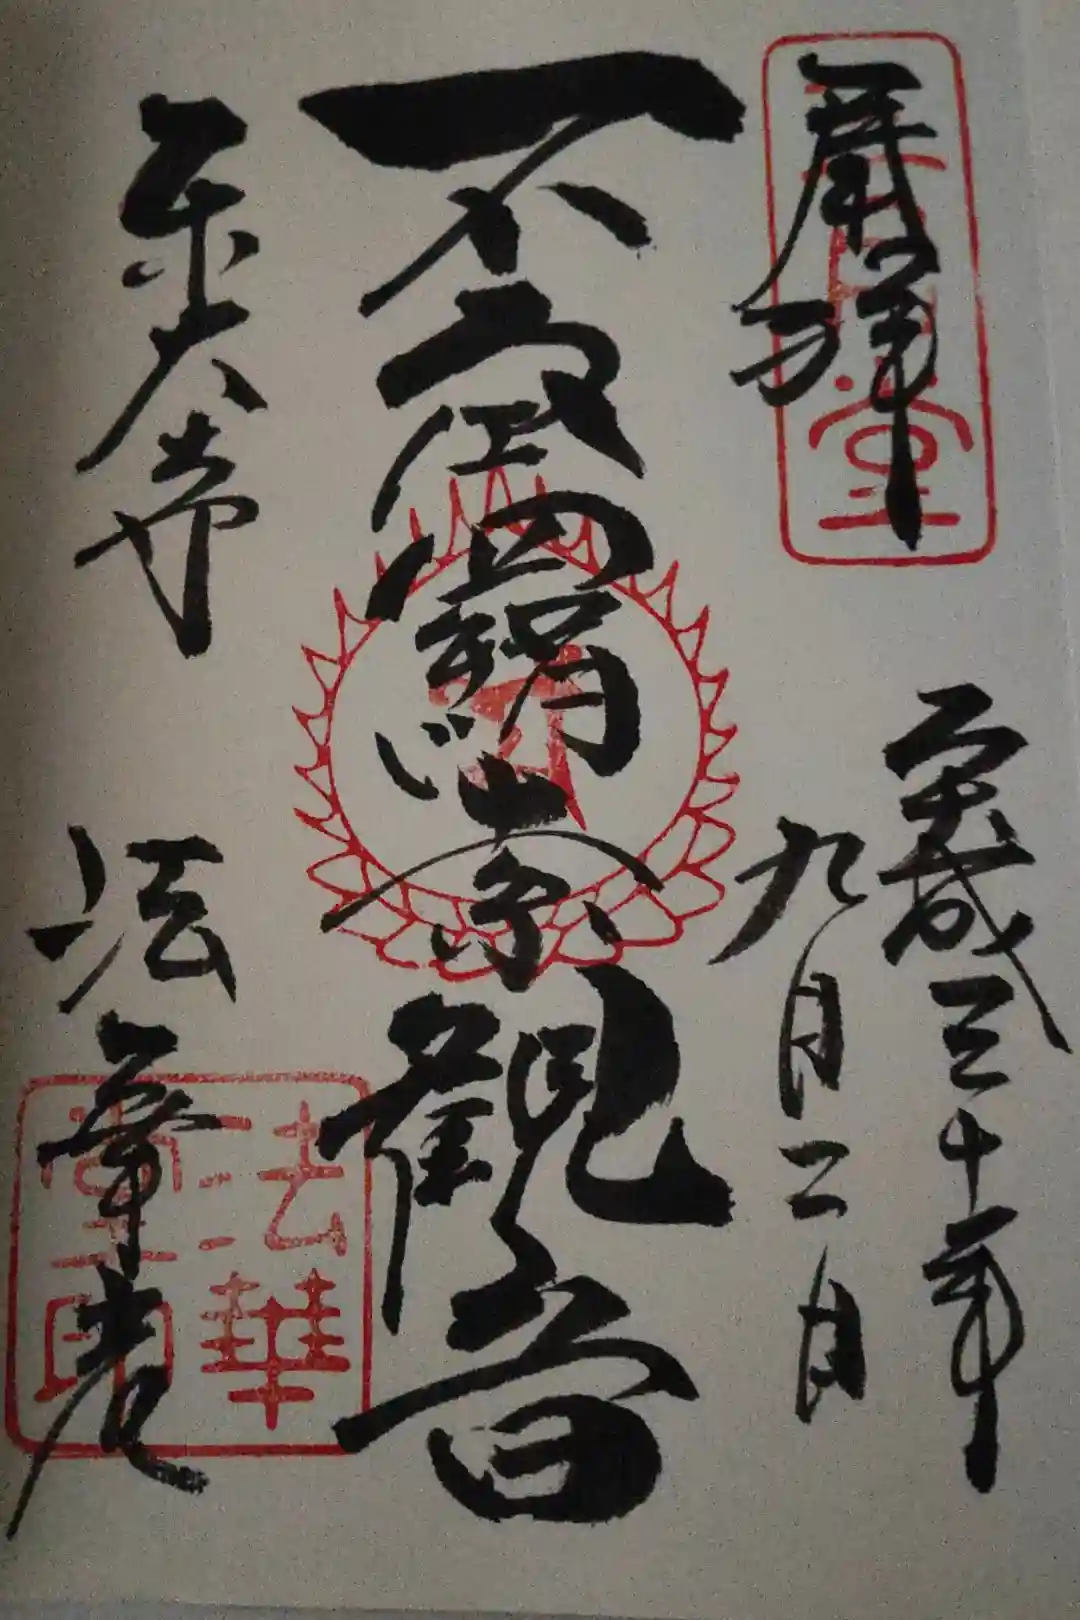 厳拝
三月堂
平成三十年
九月二日
不空羂索觀音
東大寺
法華堂
法華
堂印